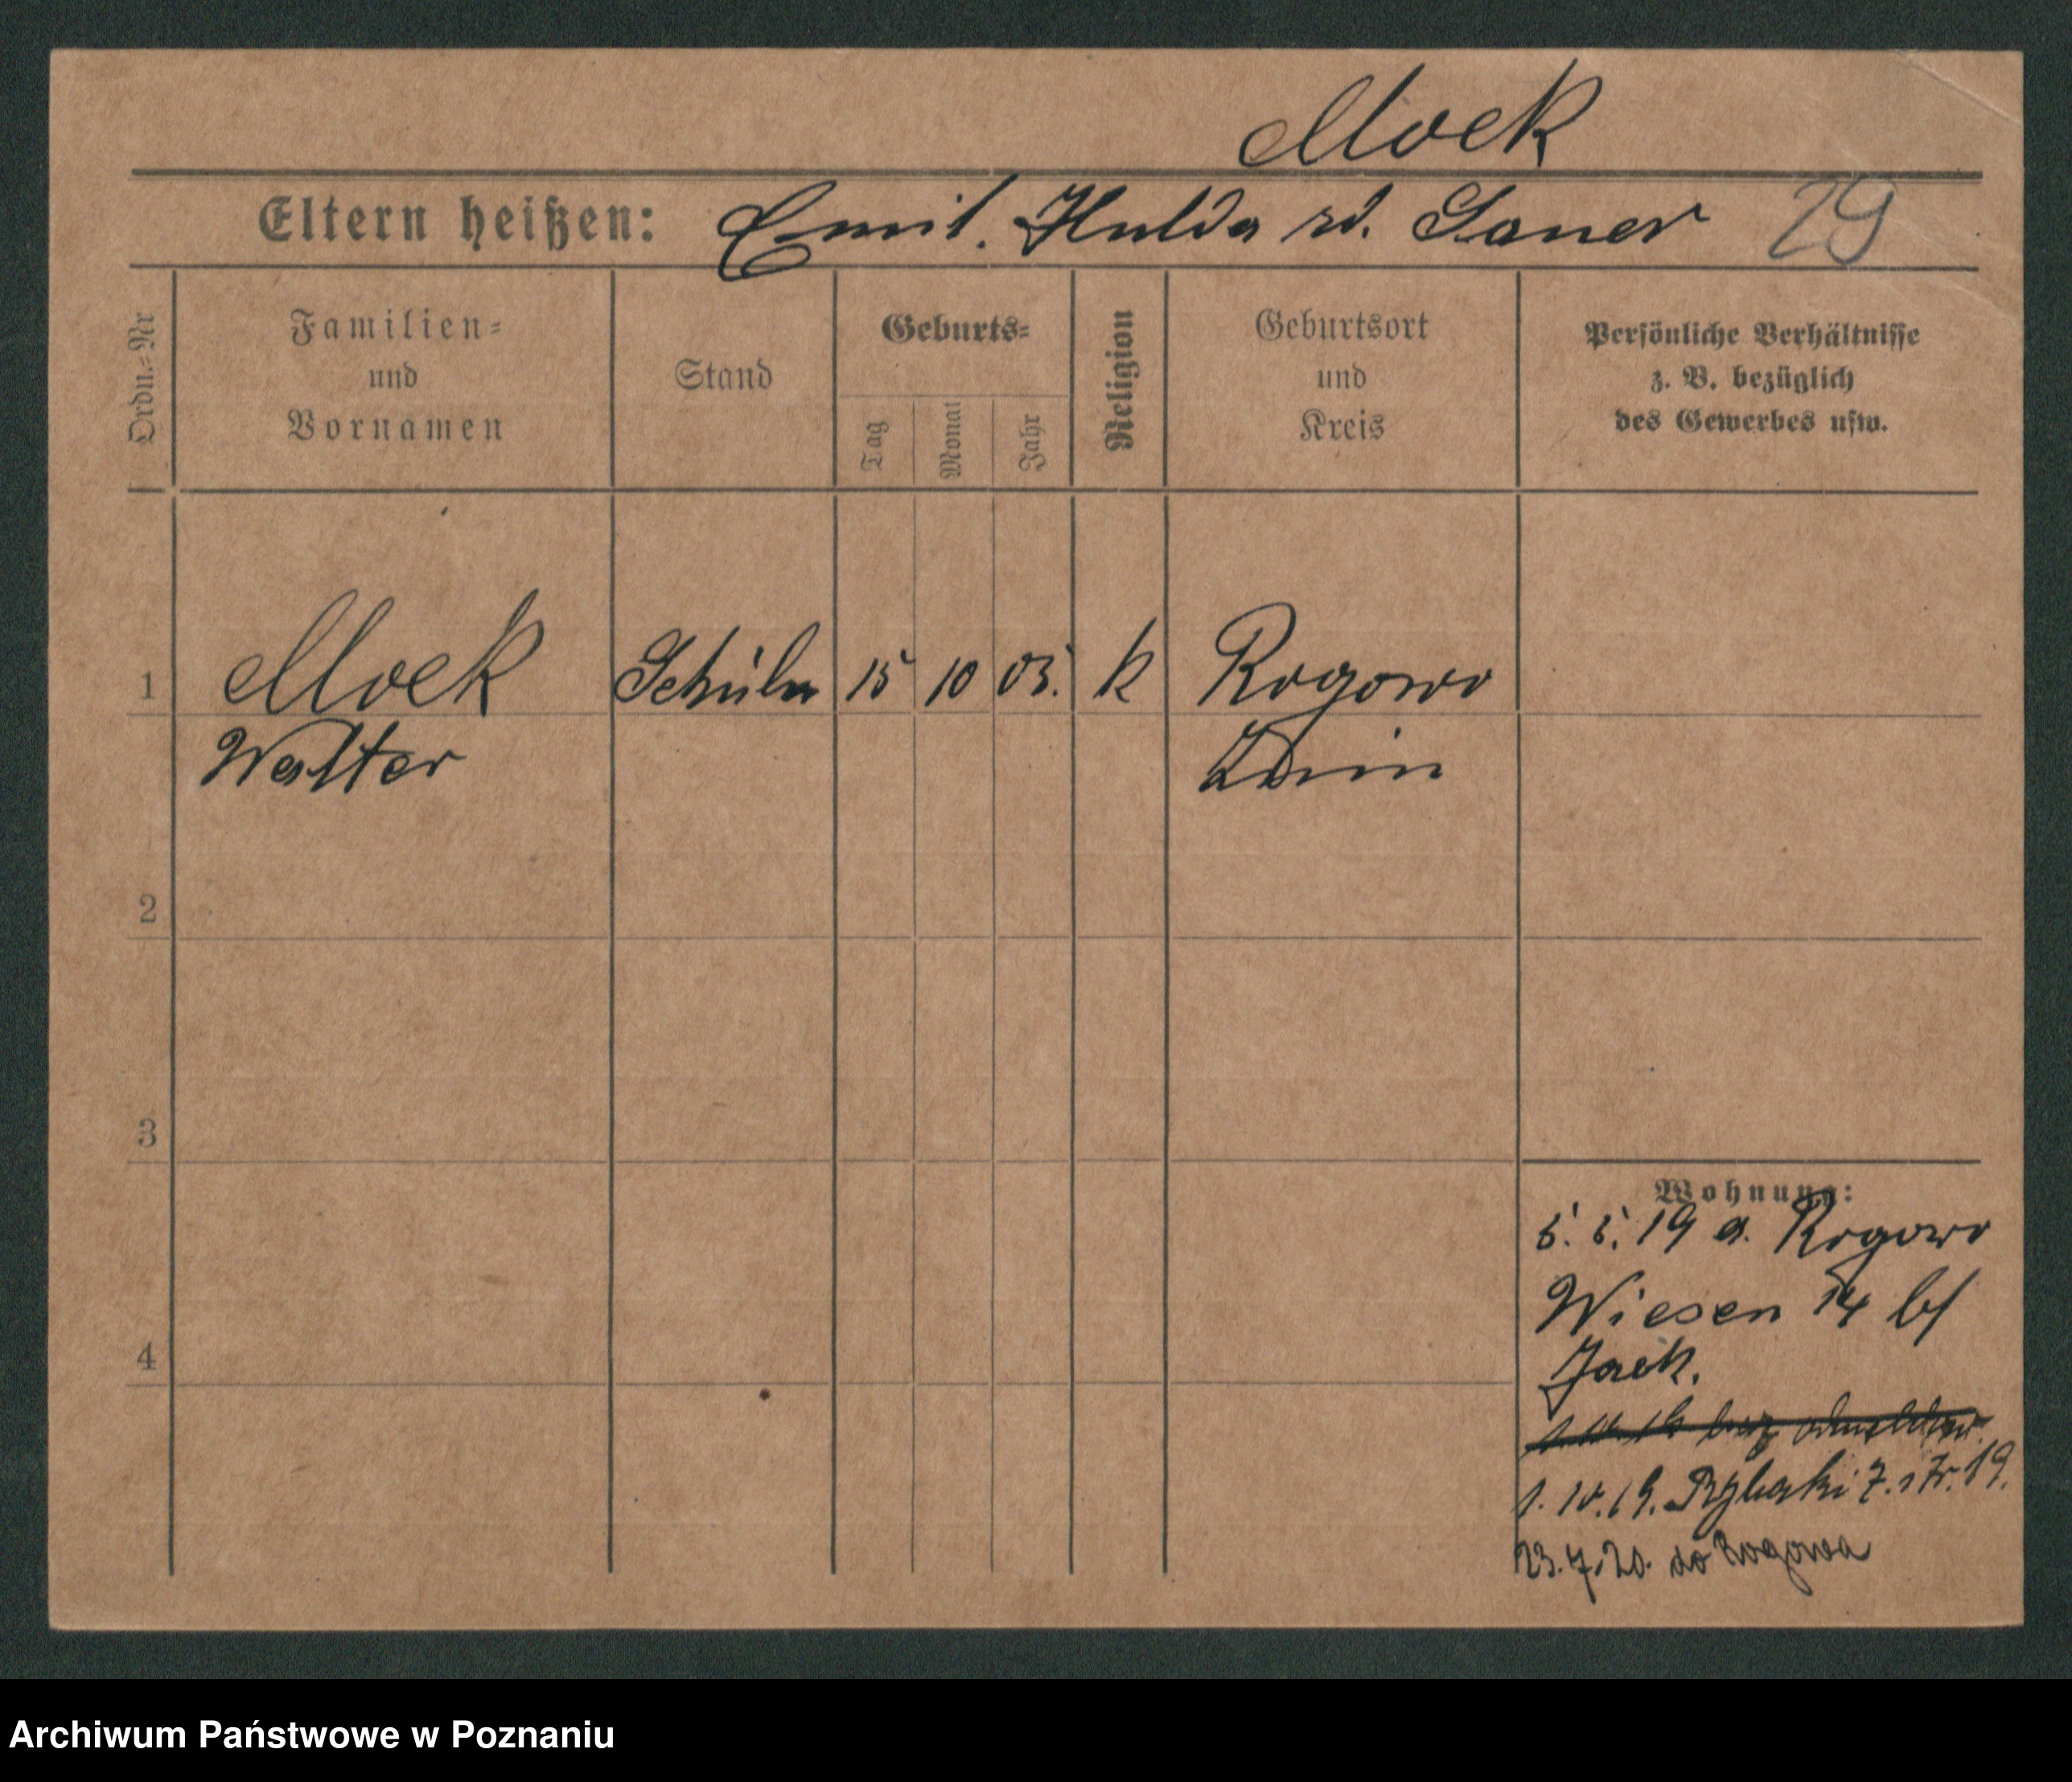 Moek
Eltern heißen: Emil. Hulda rd. Saner 29
Ordn.-Nr
Familien-
und
Vornamen
Stand
Geburts-
Tag
Monat
Jahr
Religion
Geburtsort
und
Kreis
Persönliche Verhältnisse
z. B. bezüglich
des Gewerbes usw.
1 Moek Schüler 15 10 05. k Rogowo
Walter Znin
2
3
4
Wohnung:
5. 5. 19 a. Rogowo
Wiesen 14 b/
Jaek.
1. 10. 19. Rybaki 7. str. 19.
23. 7. 20. do Rogowa
Archiwum Państwowe w Poznaniu